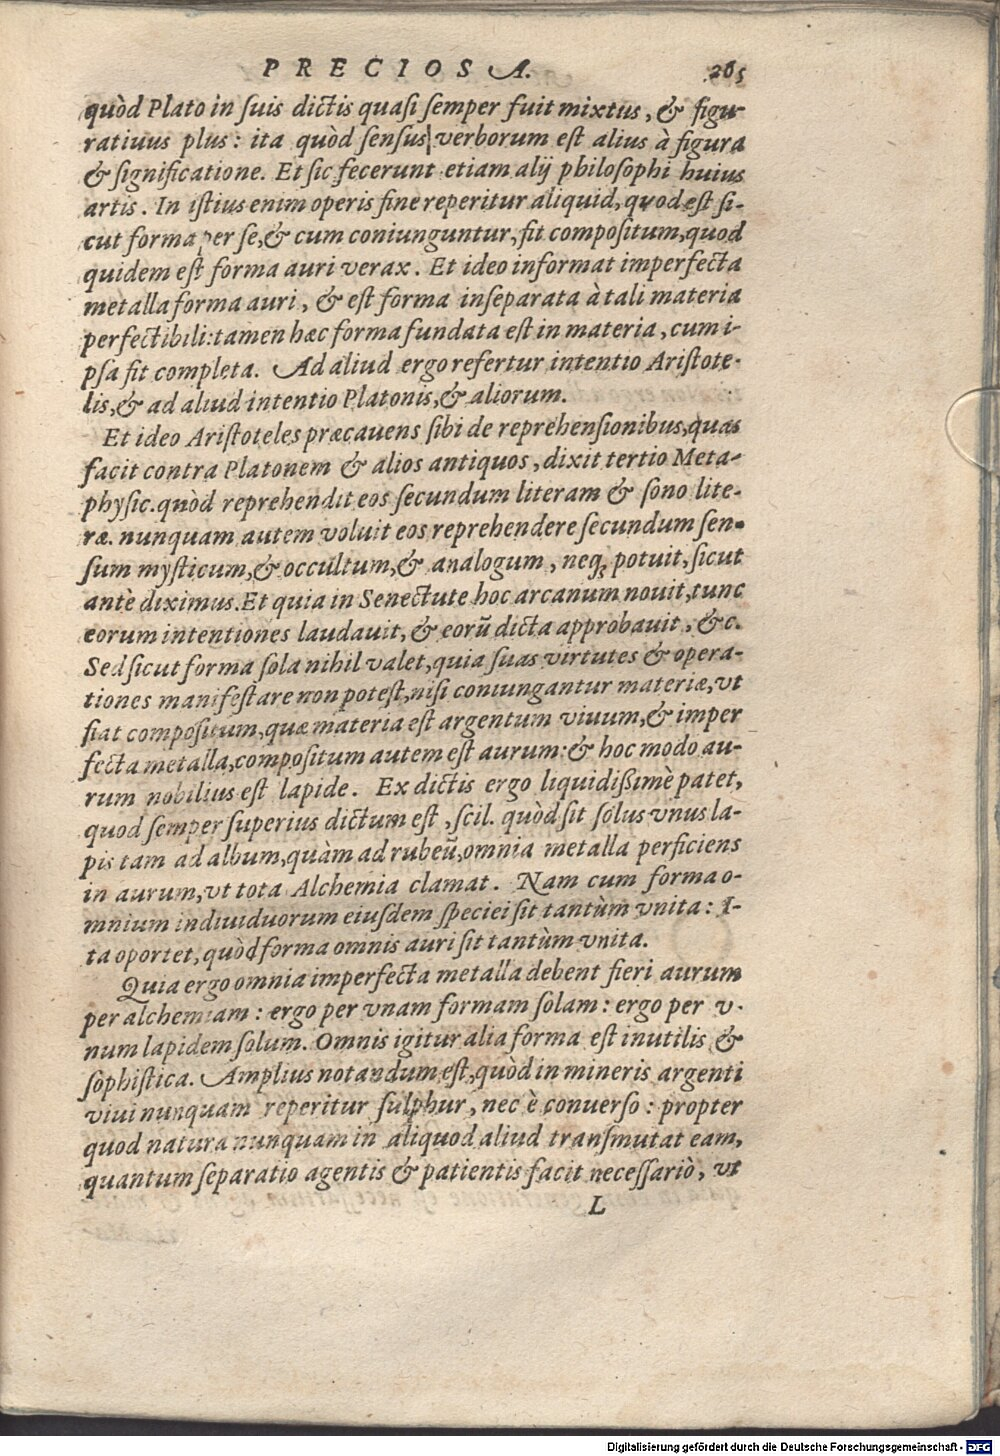 PRECIOSA. 265
quòd Plato in suis dictis quasi semper fuit mixtus, & figu-
ratiuus plus: ita quòd sensus verborum est alius à figura
& significatione. Et sic fecerunt etiam alij philosophi huius
artis. In istius enim operis fine reperitur aliquid, quod est si-
cut forma per se, & cum coniunguntur, fit compositum, quod
quidem est forma auri verax. Et ideo informat imperfecta
metalla forma auri, & est forma inseparata à tali materia
perfectibili: tamen hæc forma fundata est in materia, cum i-
psa fit completa. Ad aliud ergo refertur intentio Aristote-
lis, & ad aliud intentio Platonis, & aliorum.
Et ideo Aristoteles præcauens sibi de reprehensionibus, quas
facit contra Platonem & alios antiquos, dixit tertio Meta-
physic. quòd reprehendit eos secundum literam & sono lite-
ræ. nunquam autem voluit eos reprehendere secundum sen-
sum mysticum, & occultum, & analogum, neq; potuit, sicut
antè diximus. Et quia in Senectute hoc arcanum nouit, tunc
eorum intentiones laudauit, & eorũ dicta approbauit, &c.
Sed sicut forma sola nihil valet, quia suas virtutes & opera-
tiones manifestare non potest, nisi coniungantur materiæ, vt
fiat compositum, quæ materia est argentum viuum, & imper
fecta metalla, compositum autem est aurum: & hoc modo au-
rum nobilius est lapide. Ex dictis ergo liquidißimè patet,
quod semper superius dictum est, scil. quòd sit solus vnus la-
pis tam ad album, quàm ad rubeũ, omnia metalla perficiens
in aurum, vt tota Alchemia clamat. Nam cum forma o-
mnium indiuiduorum eiusdem speciei sit tantùm vnita: I-
ta oportet, quòd forma omnis auri sit tantùm vnita.
Quia ergo omnia imperfecta metalla debent fieri aurum
per alchemiam: ergo per vnam formam solam: ergo per v-
num lapidem solum. Omnis igitur alia forma est inutilis &
sophistica. Amplius notandum est, quòd in mineris argenti
viui nunquam reperitur sulphur, nec è conuerso: propter
quod natura nunquam in aliquod aliud transmutat eam,
quantum separatio agentis & patientis facit necessariò, vt
L
Digitalisierung gefördert durch die Deutsche Forschungsgemeinschaft - DFG